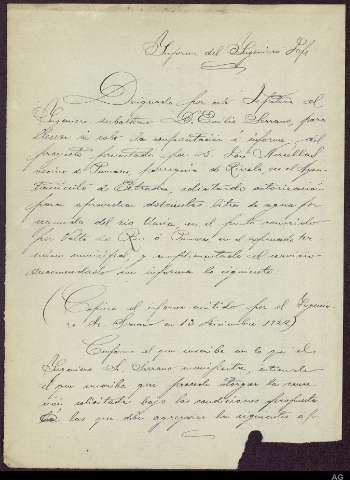 Informe del Ingeniero Jefe
Designado por esta Jefatura el
Ingeniero subalterno D. Emilio Serrano, para
llevar á cabo la confrontación é informe del
proyecto presentado por D. José
vecino de parroquia de en el Ayun-
tamiento de Estrada, solicitando autorización
para aprovechar doscientos litros de agua por
segundo del río en el punto conocido
por en el referido tér-
mino municipal, y cumplimentado el servicio
encomendado informa lo siguiente
(Copia el informe emitido por el Ingenie-
ro Sr. Serrano en 12 Diciembre
Conforme el que suscribe en lo que el
Ingeniero Sr. Serrano manifiesta, entiende
el que suscribe que procede otorgar la conce-
sión solicitada bajo las condiciones propuestas
á las que deben agregarse las siguientes
AG